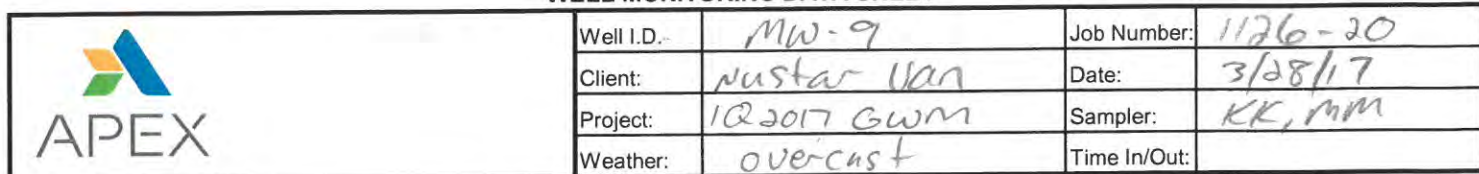 Well I.D. MW-9 Job Number: 1126-20
Client: Nustar Van Date: 3/28/17
APEX
Project: 1Q2017 GWM Sampler: KK, MM
Weather: overcast Time In/Out: